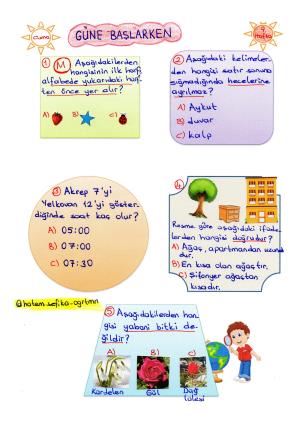 Cuma
GÜNE BAŞLARKEN
9.
Hafta
1) M Aşağıdakilerden
hangisinin ilk harfi
alfabede yukarıdaki harf-
ten önce yer alır?
A)
B)
C)
2) Aşağıdaki kelimeler-
den hangisi satır sonuna
sığmadığında hecelerine
ayrılmaz?
A) Aykut
B) duvar
C) kalp
3) Akrep 7'yi
Yelkovan 12'yi göster-
diğinde saat kaç olur?
A) 05:00
B) 07:00
C) 07:30
4.
Resme göre aşağıdaki ifade-
lerden hangisi doğrudur?
A) Ağaç, apartmandan uzun-
dur.
B) En kısa olan ağaçtır.
C) Şifonyer ağaçtan
kısadır.
@hatem.sefika-ogrtmn
5) Aşağıdakilerden han-
gisi yabani bitki de-
ğildir?
A) B) C)
Kardelen Gül Dağ
lalesi